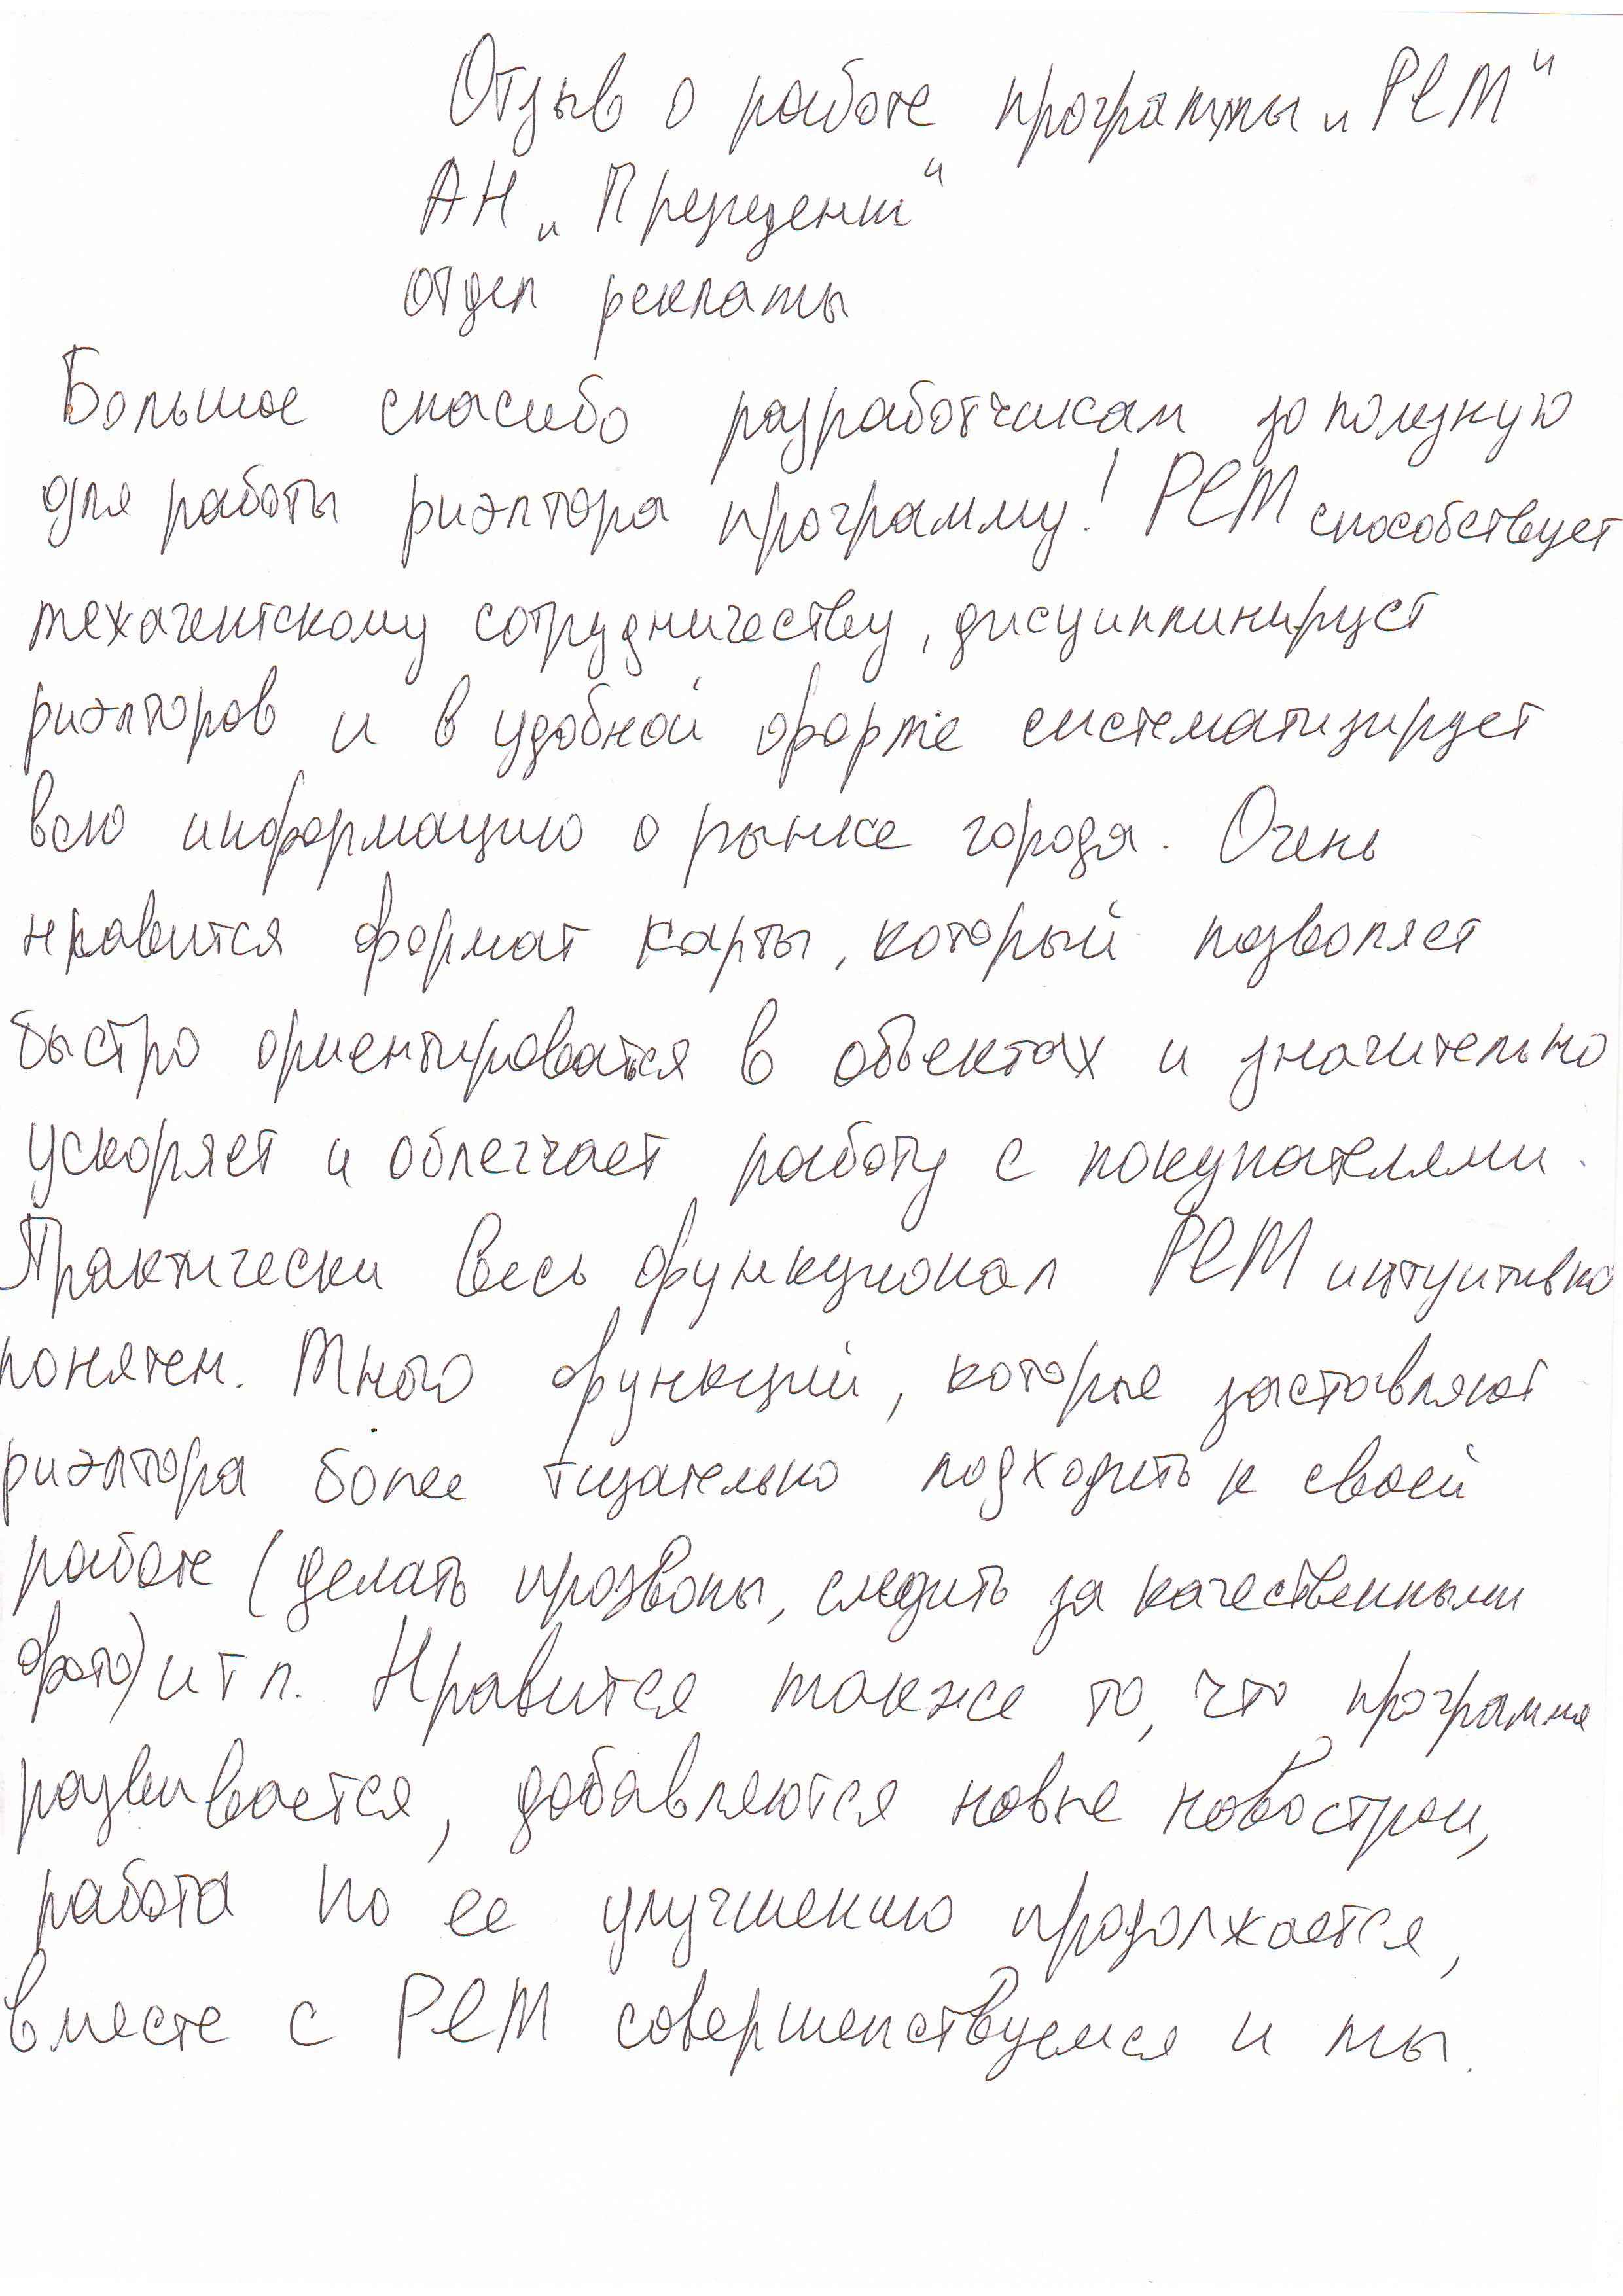 Отзыв о работе программы „РЕМ“
АН „Президент“
отдел рекламы
Большое спасибо разработчикам за полезную
для работы риэлтора программу! РЕМ способствует
межагентскому сотрудничеству, дисциплинирует
риэлторов и в удобной форме систематизирует
всю информацию о рынке города. Очень
нравится формат карты, который позволяет
быстро ориентироваться в объектах и значительно
ускоряет и облегчает работу с покупателями.
Практически весь функционал РЕМ интуитивно
понятен. Много функций, которые заставляют
риэлтора более тщательно подходить к своей
работе (делать прозвоны, следить за качественными
фото) и т п. Нравится также то, что программа
развивается, добавляются новые новострои,
работа по ее улучшению продолжается,
вместе с РЕМ совершенствуемся и мы.